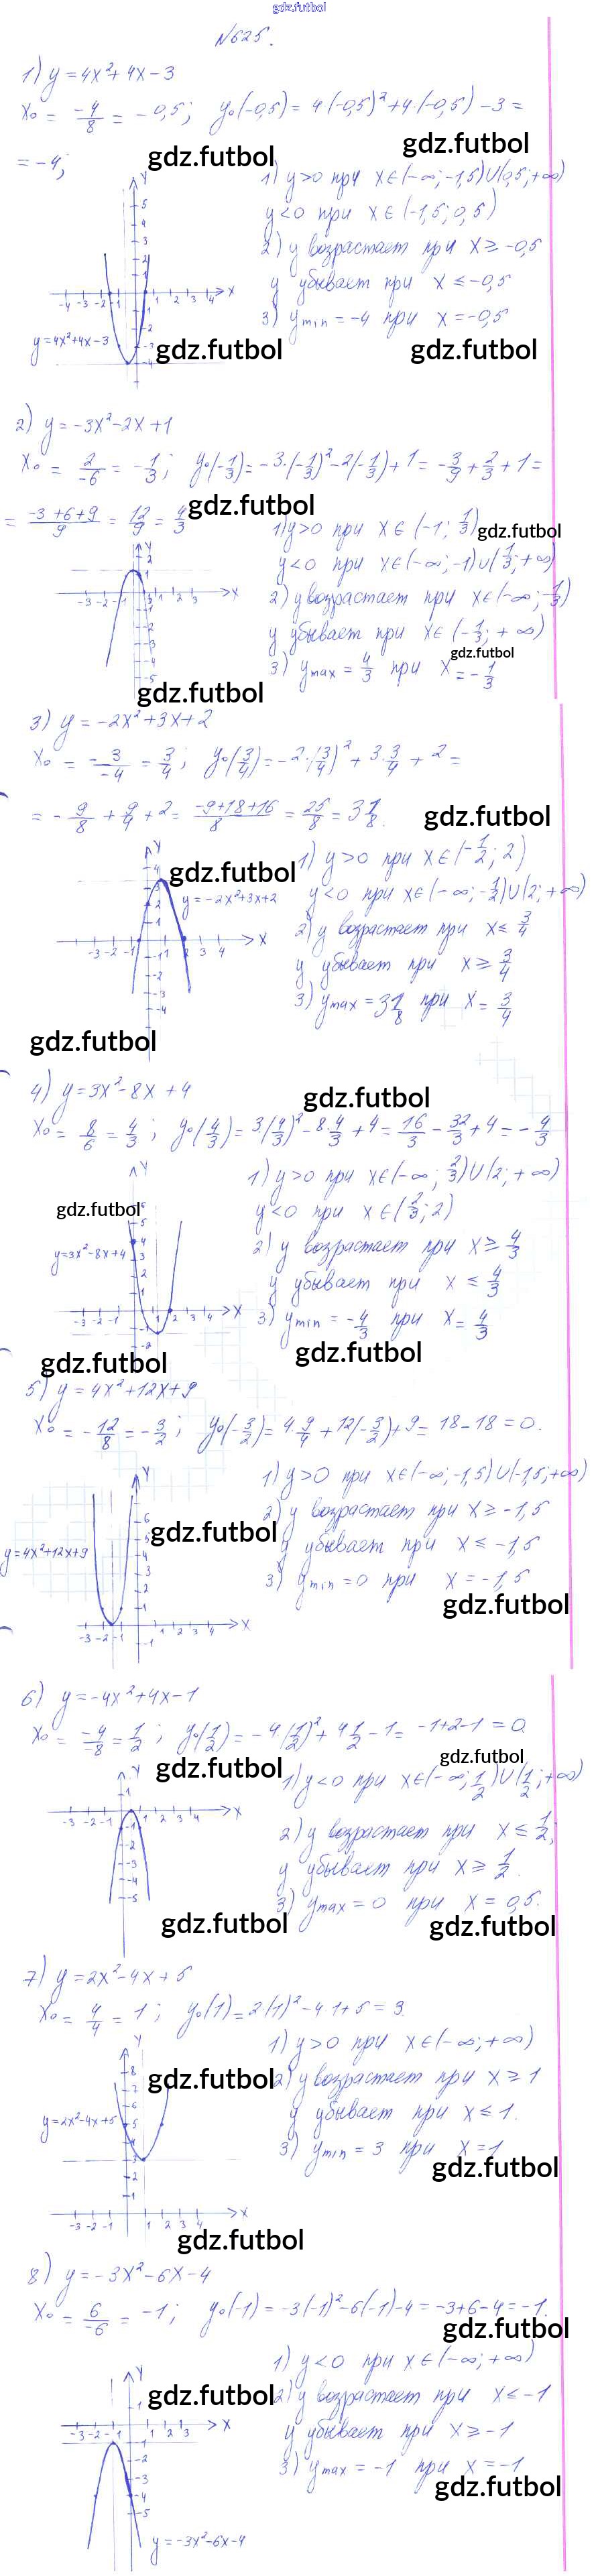 gdz.futbol
№625.
1) y = 4x² + 4x - 3
x₀ = -4/8 = -0,5; y₀(-0,5) = 4·(-0,5)² + 4·(-0,5) - 3 =
gdz.futbol
gdz.futbol
= -4;
1) y>0 при x∈(-∞; -1,5)∪(0,5; +∞)
y<0 при x∈(-1,5; 0,5)
2) y возрастает при x ≥ -0,5
y убывает при x ≤ -0,5
3) y min = -4 при x = -0,5
y = 4x² + 4x - 3
gdz.futbol
gdz.futbol
2) y = -3x² - 2x + 1
x₀ = 2/-6 = -1/3; y₀(-1/3) = -3·(-1/3)² - 2(-1/3) + 1 = -3/9 + 2/3 + 1 =
= (-3+6+9)/9 = 12/9 = 4/3
gdz.futbol
1) y>0 при x∈(-1; 1/3)
gdz.futbol
y<0 при x∈(-∞; -1)∪(1/3; +∞)
2) y возрастает при x∈(-∞; -1/3)
y убывает при x∈(-1/3; +∞)
gdz.futbol
3) y max = 4/3 при x = -1/3
gdz.futbol
3) y = -2x² + 3x + 2
x₀ = -3/-4 = 3/4; y₀(3/4) = -2·(3/4)² + 3·3/4 + 2 =
= -9/8 + 9/4 + 2 = (-9+18+16)/8 = 25/8 = 3 1/8.
gdz.futbol
1) y>0 при x∈(-1/2; 2)
gdz.futbol
y = -2x² + 3x + 2
y<0 при x∈(-∞; -1/2)∪(2; +∞)
2) y возрастает при x ≤ 3/4
y убывает при x ≥ 3/4
3) y max = 3 1/8 при x = 3/4
gdz.futbol
4) y = 3x² - 8x + 4
gdz.futbol
x₀ = 8/6 = 4/3; y₀(4/3) = 3(4/3)² - 8·4/3 + 4 = 16/3 - 32/3 + 4 = -4/3
1) y>0 при x∈(-∞; 2/3)∪(2; +∞)
gdz.futbol
y<0 при x∈(2/3; 2)
y = 3x² - 8x + 4
2) y возрастает при x ≥ 4/3
y убывает при x ≤ 4/3
3) y min = -4/3 при x = 4/3
gdz.futbol
gdz.futbol
5) y = 4x² + 12x + 9
x₀ = -12/8 = -3/2; y₀(-3/2) = 4·9/4 + 12(-3/2) + 9 = 18 - 18 = 0.
1) y>0 при x∈(-∞; -1,5)∪(-1,5; +∞)
2) y возрастает при x ≥ -1,5
gdz.futbol
y убывает при x ≤ -1,5
y = 4x² + 12x + 9
3) y min = 0 при x = -1,5
gdz.futbol
6) y = -4x² + 4x - 1
x₀ = -4/-8 = 1/2; y₀(1/2) = -4·(1/2)² + 4 1/2 - 1 = -1+2-1 = 0.
gdz.futbol
gdz.futbol
1) y<0 при x∈(-∞; 1/2)∪(1/2; +∞)
2) y возрастает при x ≤ 1/2;
y убывает при x ≥ 1/2.
3) y max = 0 при x = 0,5.
gdz.futbol
gdz.futbol
7) y = 2x² - 4x + 5
x₀ = 4/4 = 1; y₀(1) = 2(1)² - 4·1 + 5 = 3.
1) y>0 при x∈(-∞; +∞)
gdz.futbol
2) y возрастает при x ≥ 1
y = 2x² - 4x + 5
y убывает при x ≤ 1.
3) y min = 3 при x = 1
gdz.futbol
gdz.futbol
8) y = -3x² - 6x - 4
x₀ = 6/-6 = -1; y₀(-1) = -3(-1)² - 6(-1) - 4 = -3+6-4 = -1.
gdz.futbol
1) y<0 при x∈(-∞; +∞)
gdz.futbol
2) y возрастает при x ≤ -1
y убывает при x ≥ -1
3) y max = -1 при x = -1
gdz.futbol
y = -3x² - 6x - 4